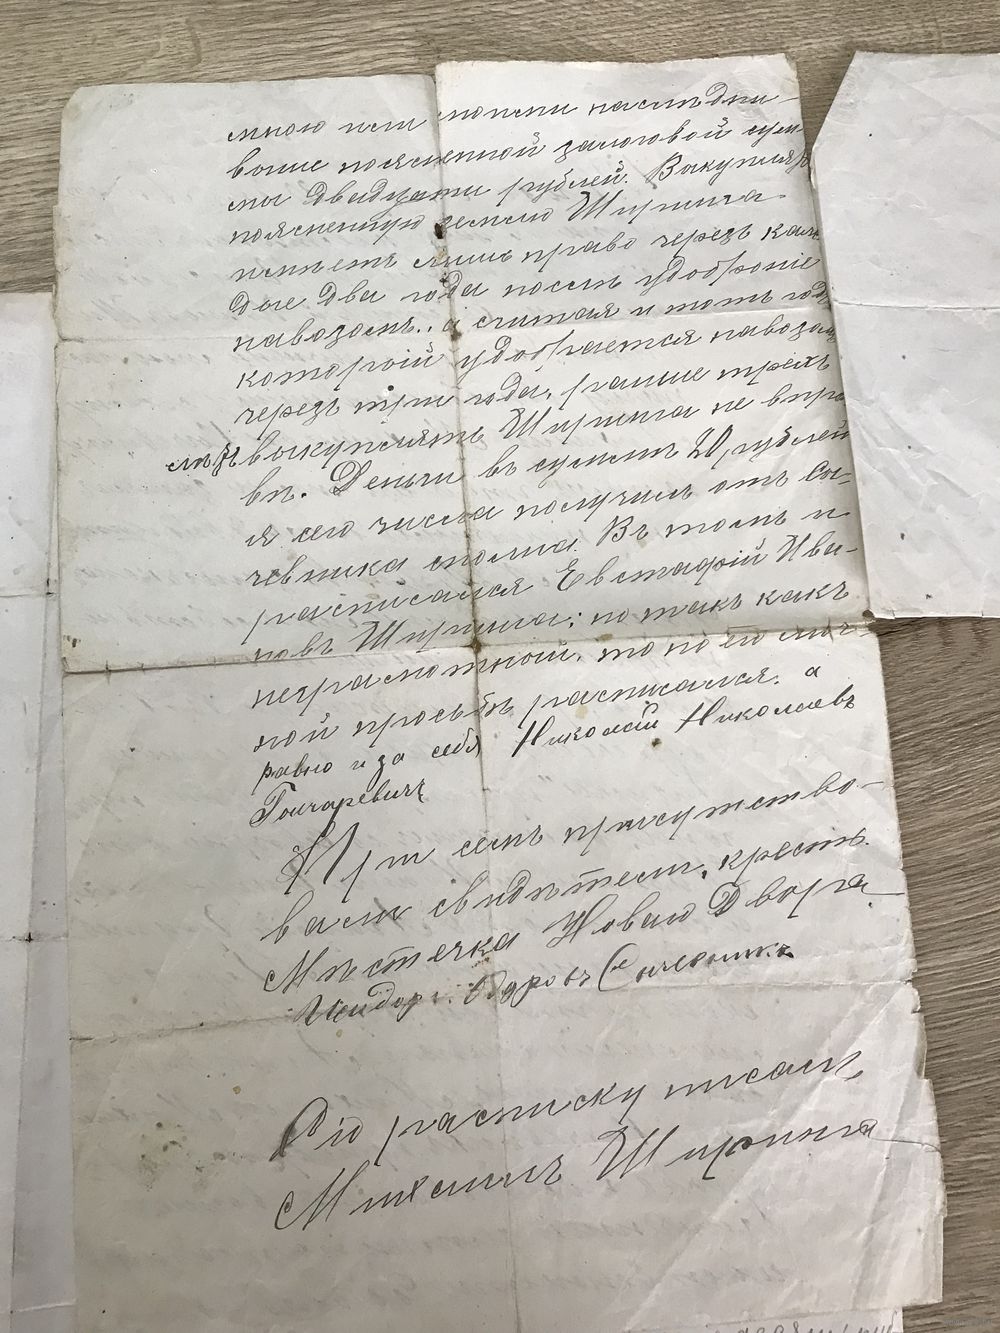 мною или моими наслѣдни-
выше поясненной залоговой сум-
мы двадцати рублей. Выкуплять
поясненную землю Ширинга
имѣетъ лишь право черезъ каж-
дые два года послѣ удобрение
навозомъ, а считая и тотъ годъ
который удобряется навозомъ
черезъ три года, раньше трехъ
лѣтъ выкуплять Ширинга не впра-
вѣ. Деньги въ суммѣ 20, рублей
я сего числа получилъ отъ Сы-
чевника сполна. Въ томъ и
расписался Евстафій Ива-
новъ Ширинга; но такъ какъ
неграмотный, то по его лич-
ной просьбѣ расписался, а
равно и за себя Николай Николаевъ
Гончаревичъ
При семъ присутство-
вали свидѣтели, крестъ.
Мѣстечка Новаго Двора
Сычевникъ
Сію расписку писалъ
Михаилъ Ширинга